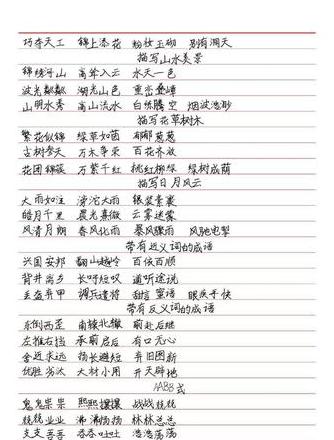 巧夺天工 锦上添花 粉妆玉砌 别有洞天
描写山水美景
锦绣河山 高耸入云 水天一色
波光粼粼 湖光山色 重峦叠嶂
山明水秀 高山流水 白练腾空 烟波浩渺
描写花草树木
繁花似锦 绿草如茵 郁郁葱葱
古树参天 万木争荣 百花齐放
花团锦簇 万紫千红 桃红柳绿 绿树成荫
描写日月风云
大雨如注 滂沱大雨 银装素裹
皓月千里 晨光熹微 云雾迷蒙
风清月朗 春风化雨 暴风骤雨 风驰电掣
带有近义词的成语
兴国安邦 翻山越岭 百依百顺
背井离乡 长吁短叹 道听途说
丢盔弃甲 调兵遣将 甜言蜜语 眼疾手快
带有反义词的成语
东倒西歪 南辕北辙 前赴后继
左推右挡 承前启后 有口无心
舍近求远 扬长避短 弃旧图新
优胜劣汰 大材小用 开天辟地
AABB式
鬼鬼祟祟 熙熙攘攘 战战兢兢
兢兢业业 沸沸扬扬 林林总总
吞吞吐吐 浩浩荡荡